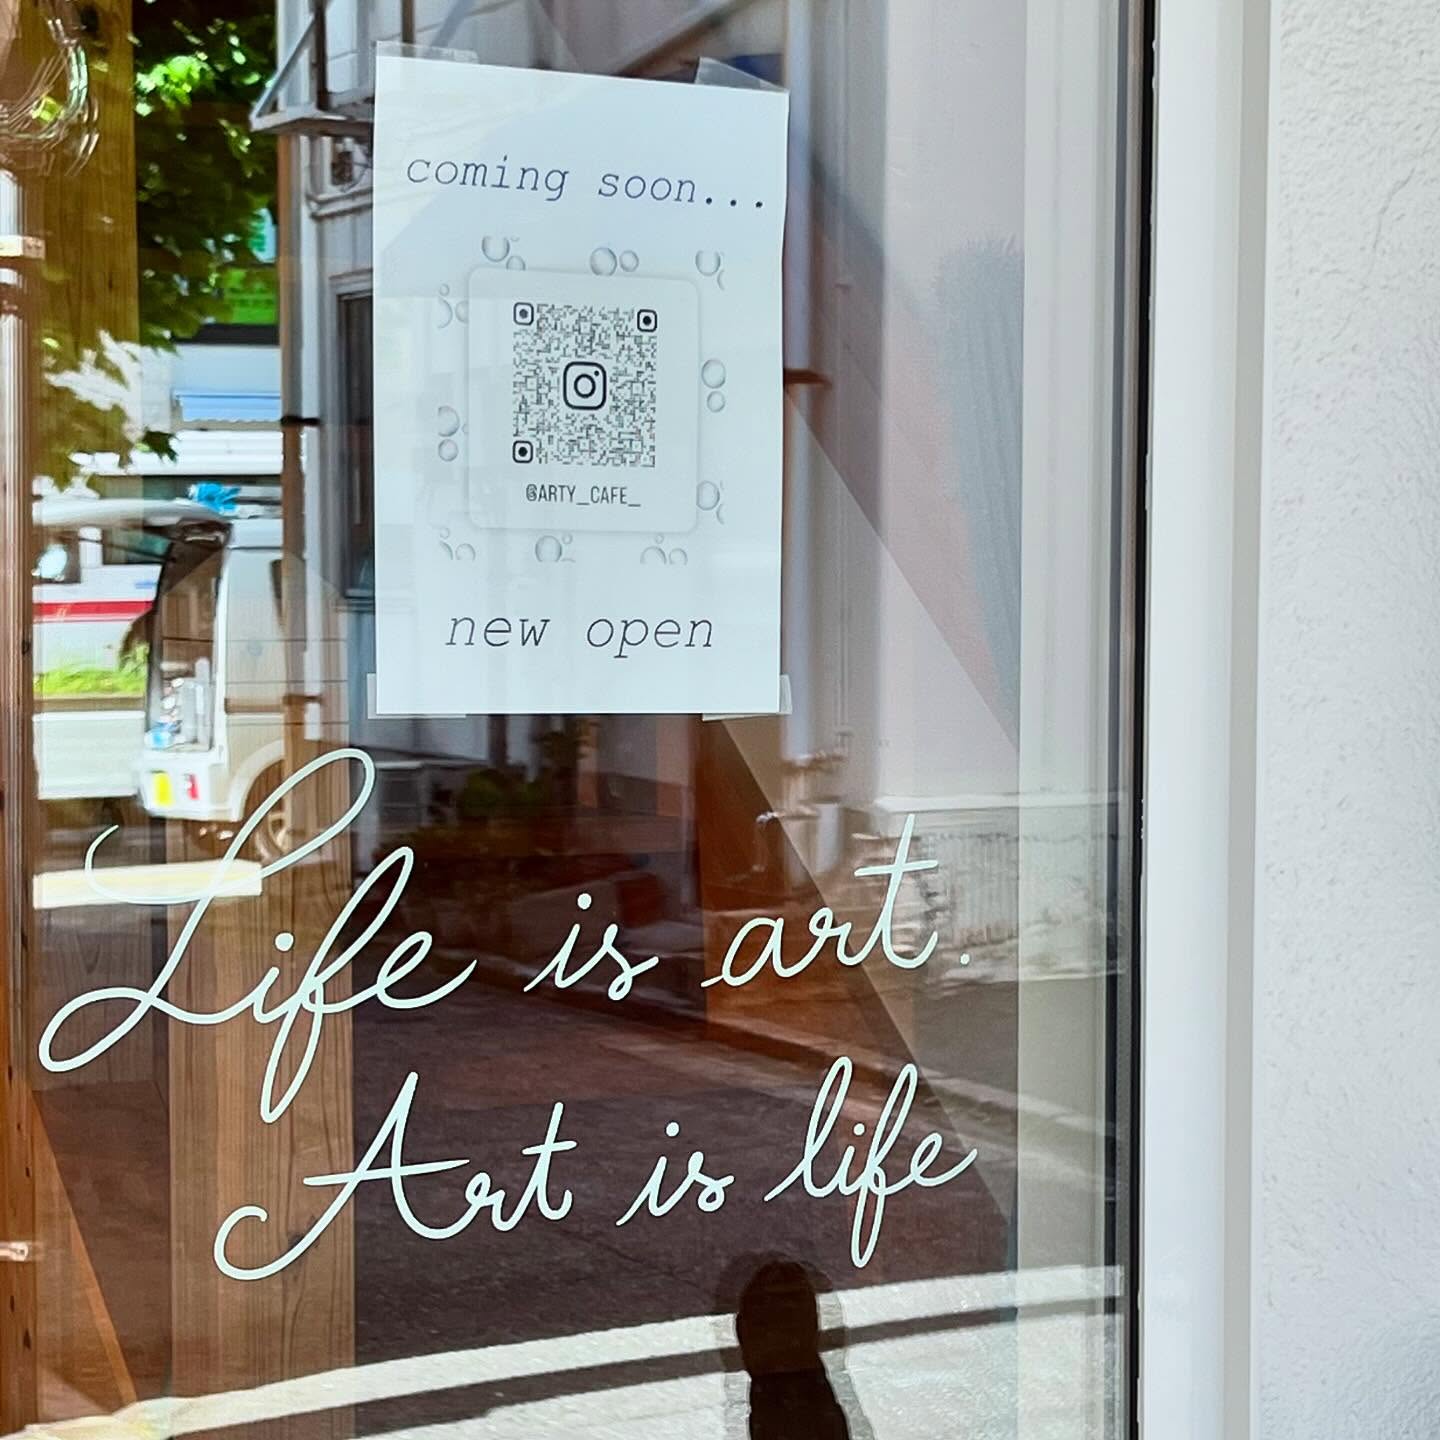 coming soon...
@ARTY_CAFE_
new open
Life is art.
Art is life